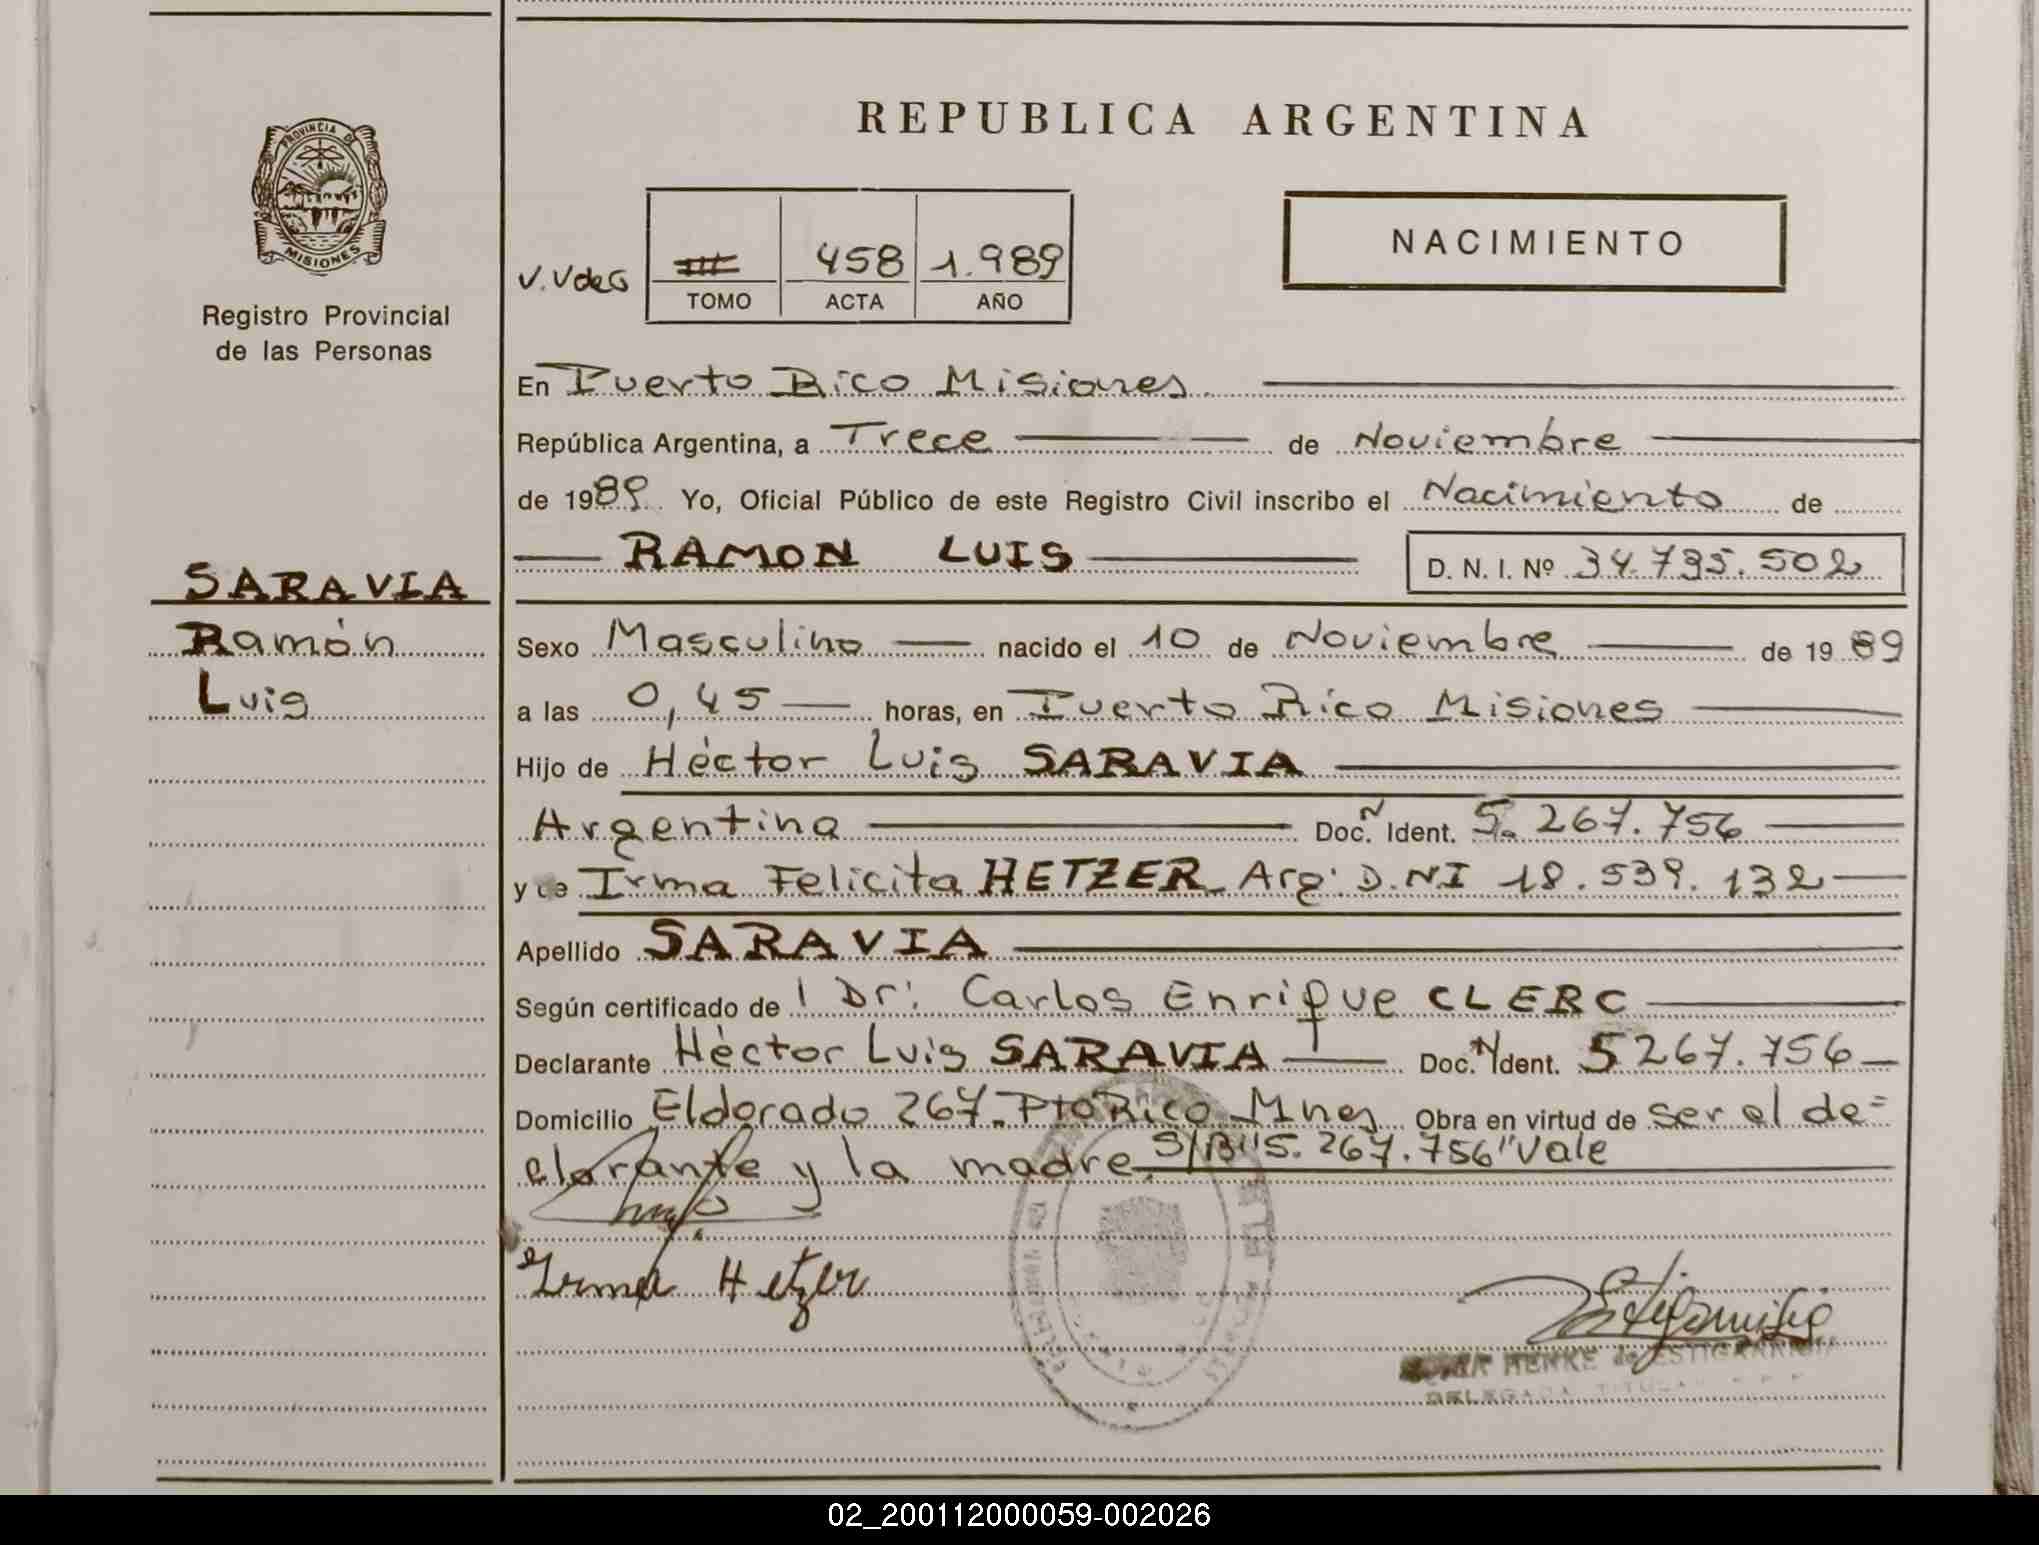 REPUBLICA ARGENTINA
PROVINCIA DE
MISIONES
Registro Provincial
de las Personas
V.VdeG
III 458 1.989
TOMO ACTA AÑO
NACIMIENTO
En Puerto Rico Misiones.
República Argentina, a Trece de Noviembre
de 1989 Yo, Oficial Público de este Registro Civil inscribo el Nacimiento de
RAMON LUIS D. N. I. Nº 34.735.502
SARAVIA
Ramón
Luis
Sexo Masculino nacido el 10 de Noviembre de 1989
a las 0,45 horas, en Puerto Rico Misiones
Hijo de Héctor Luis SARAVIA
Argentina Doc. N Ident. 5. 267.756
y de Irma Felicita HETZER Arg. D.NI 18.539.132
Apellido SARAVIA
Según certificado de Dr: Carlos Enrique CLERC
Declarante Héctor Luis SARAVIA Doc. N Ident. 5267.756
Domicilio Eldorado 267. Pto Rico Mnes Obra en virtud de ser el de=
clarante y la madre. S/B"5.267.756" Vale
Irma Hetzer
HENKE de ESTIGARRIBIA
DELEGADA TITULAR
02_200112000059-002026